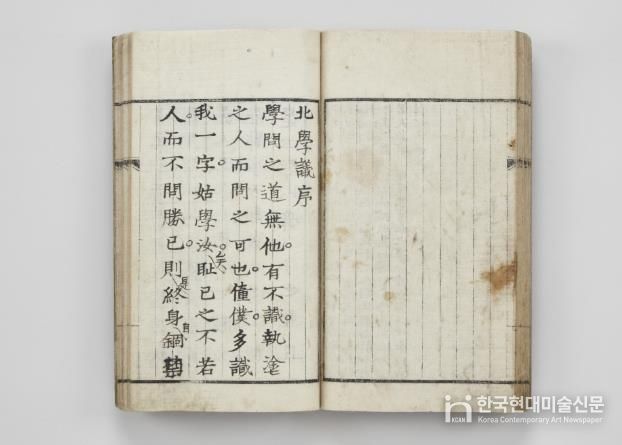 北學議序
學問之道無他。有不識。執塗
之人而問之可也。僮僕。多識
我一字。姑學汝。矣恥已之不若
人。而不問勝已。則是終身自錮
한국현대미술신문
KCAN Korea Contemporary Art Newspaper